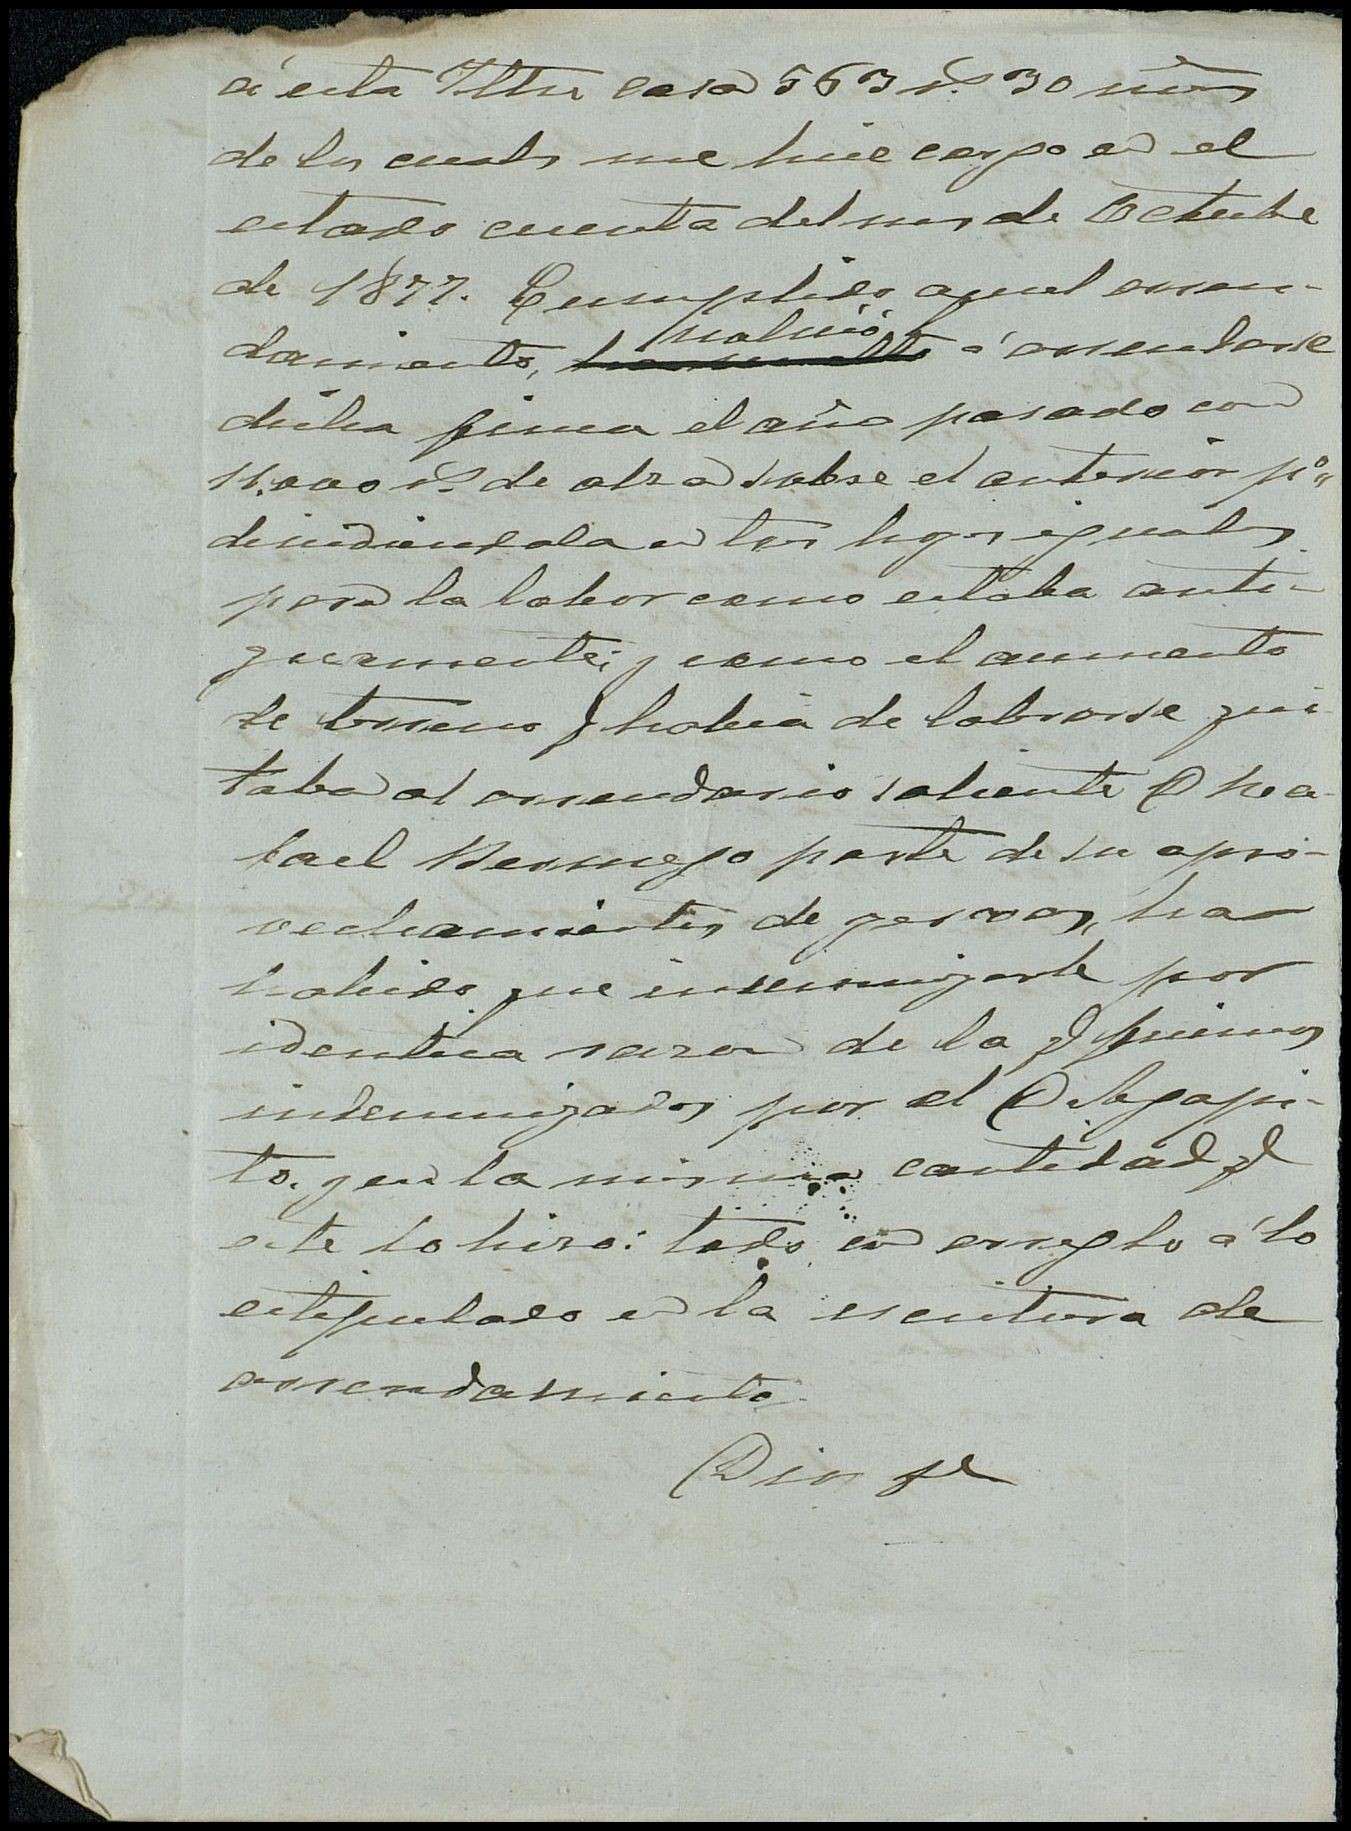 á esta Iltre casa 563 rs. 30 mrs
de los cuales me hice cargo en el
estado cuenta del mes de Octubre
de 1877. Cumplido aquel arren-
damiento, volvió á arrendarse
dicha finca el año pasado con
11.000 rs. de alza sobre el anterior pº,,
dividiendola en tres hojas iguales
para la labor como estaba anti-
guamente; y como el aumento
de terreno q habia de labrarse qui-
taba al arrendario saliente D Rea-
fael Bermejo parte de su apro-
vechamientos de yervas, ha
habido que indemnizarle por
identica razon de la q fuimos
indemnizados por el D Agapi-
to. y en la misma cantidad q
este lo hizo: todo con arreglo á lo
estipulado en la escritura de
arrendamiento.
Dios ge